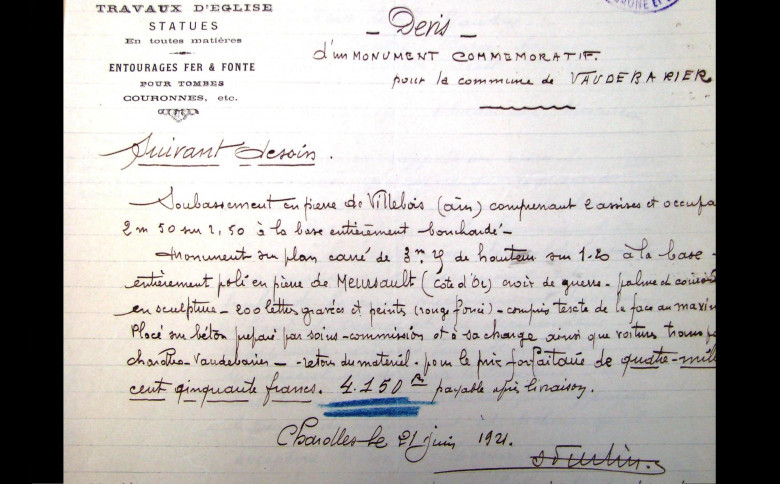 TRAVAUX D'EGLISE
STATUES
En toutes matières
ENTOURAGES FER & FONTE
POUR TOMBES
COURONNES, etc.
- Devis -
d'un MONUMENT COMMEMORATIF.
pour la commune de VAUDEBARIER
Suivant dessin.
Soubassement en pierre de Villebois (ain) comprenant 2 assises et occupa
2 m 50 sur 2,50 à la base entièrement bouchardé -
Monument sur plan carré de de hauteur sur 1.20 à la base -
entièrement poli en pierre de Meursault (cote d'Or) croix de guerre - palme
en sculpture - 200 lettres gravées et peints (rouge foncé) - compris texte de la face au maxim
Placé sur béton préparé par soins - commission et à sa charge ainsi que voitures transpo
charolles - Vaudebarier - retour du matériel - pour le prix forfaitaire de quatre-mill
cent cinquante francs. 4.150 frs payable après livraison.
Charolles le 21 juin 1921.